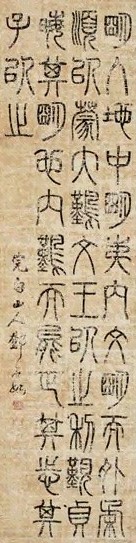 明入地中明夷內文明而外柔
順以蒙大難文王以之利艱貞
晦其明也內難而能正其志箕
子以之
完白山人鄧石如